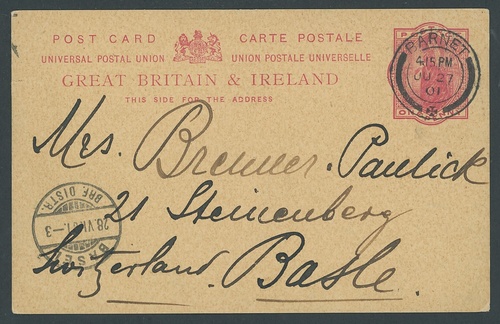 POST CARD CARTE POSTALE
UNIVERSAL POSTAL UNION UNION POSTALE UNIVERSELLE
GREAT BRITAIN & IRELAND
THIS SIDE FOR THE ADDRESS
BARNET
4.15 PM
JU 27
01
Mrs. Brenner-Paulick
21 Steinenberg
Switzerland. Basle.
BRF. DISTR.
28.VI.01.-3
BASEL